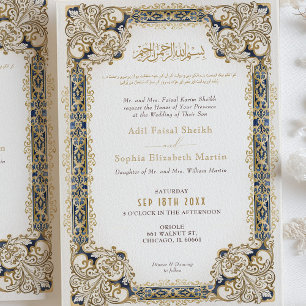 بسم الله الرحمن الرحيم
Mr. and Mrs. Faisal Karim Sheikh
request the Honor of Your Presence
at the Wedding of Their Son
Adil Faisal Sheikh
and
Sophia Elizabeth Martin
Daughter of Mr. and Mrs. William Martin
SATURDAY
SEP 18TH 20XX
3 O'CLOCK IN THE AFTERNOON
ORIOLE
661 WALNUT ST,
CHICAGO, IL 60661
Dinner & Dancing
to follow